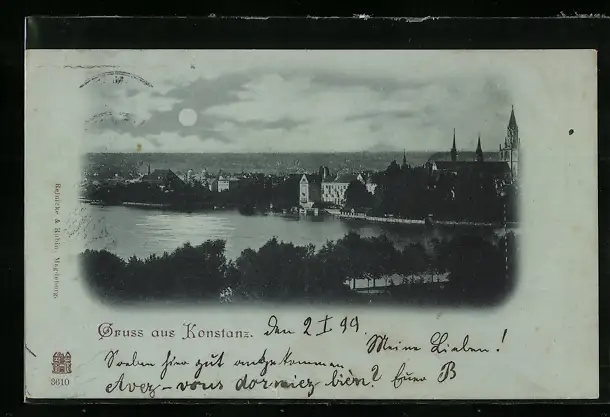 Gruss aus Konstanz. den 2 I 99
Meine Lieben!
Soeben hier gut angekommen
Avez-vous dormiez bien? Euer B
Reinicke & Rubin Magdeburg.
3610